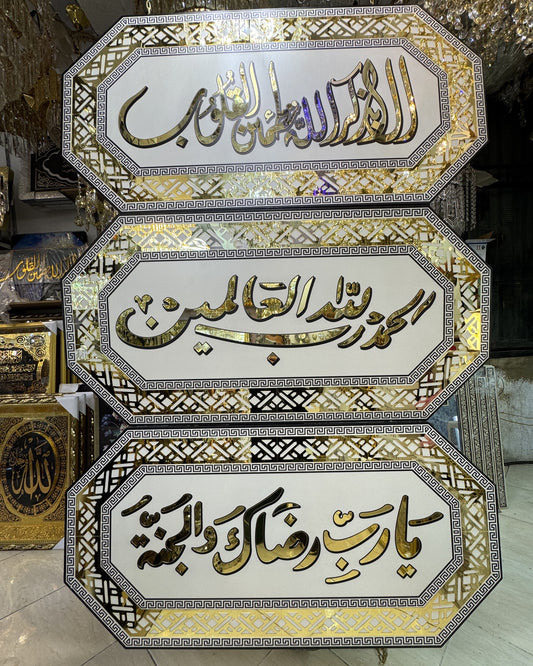 ألا بذكر الله تطمئن القلوب
الحمد لله رب العالمين
يا رب رضاك والجنة
الله